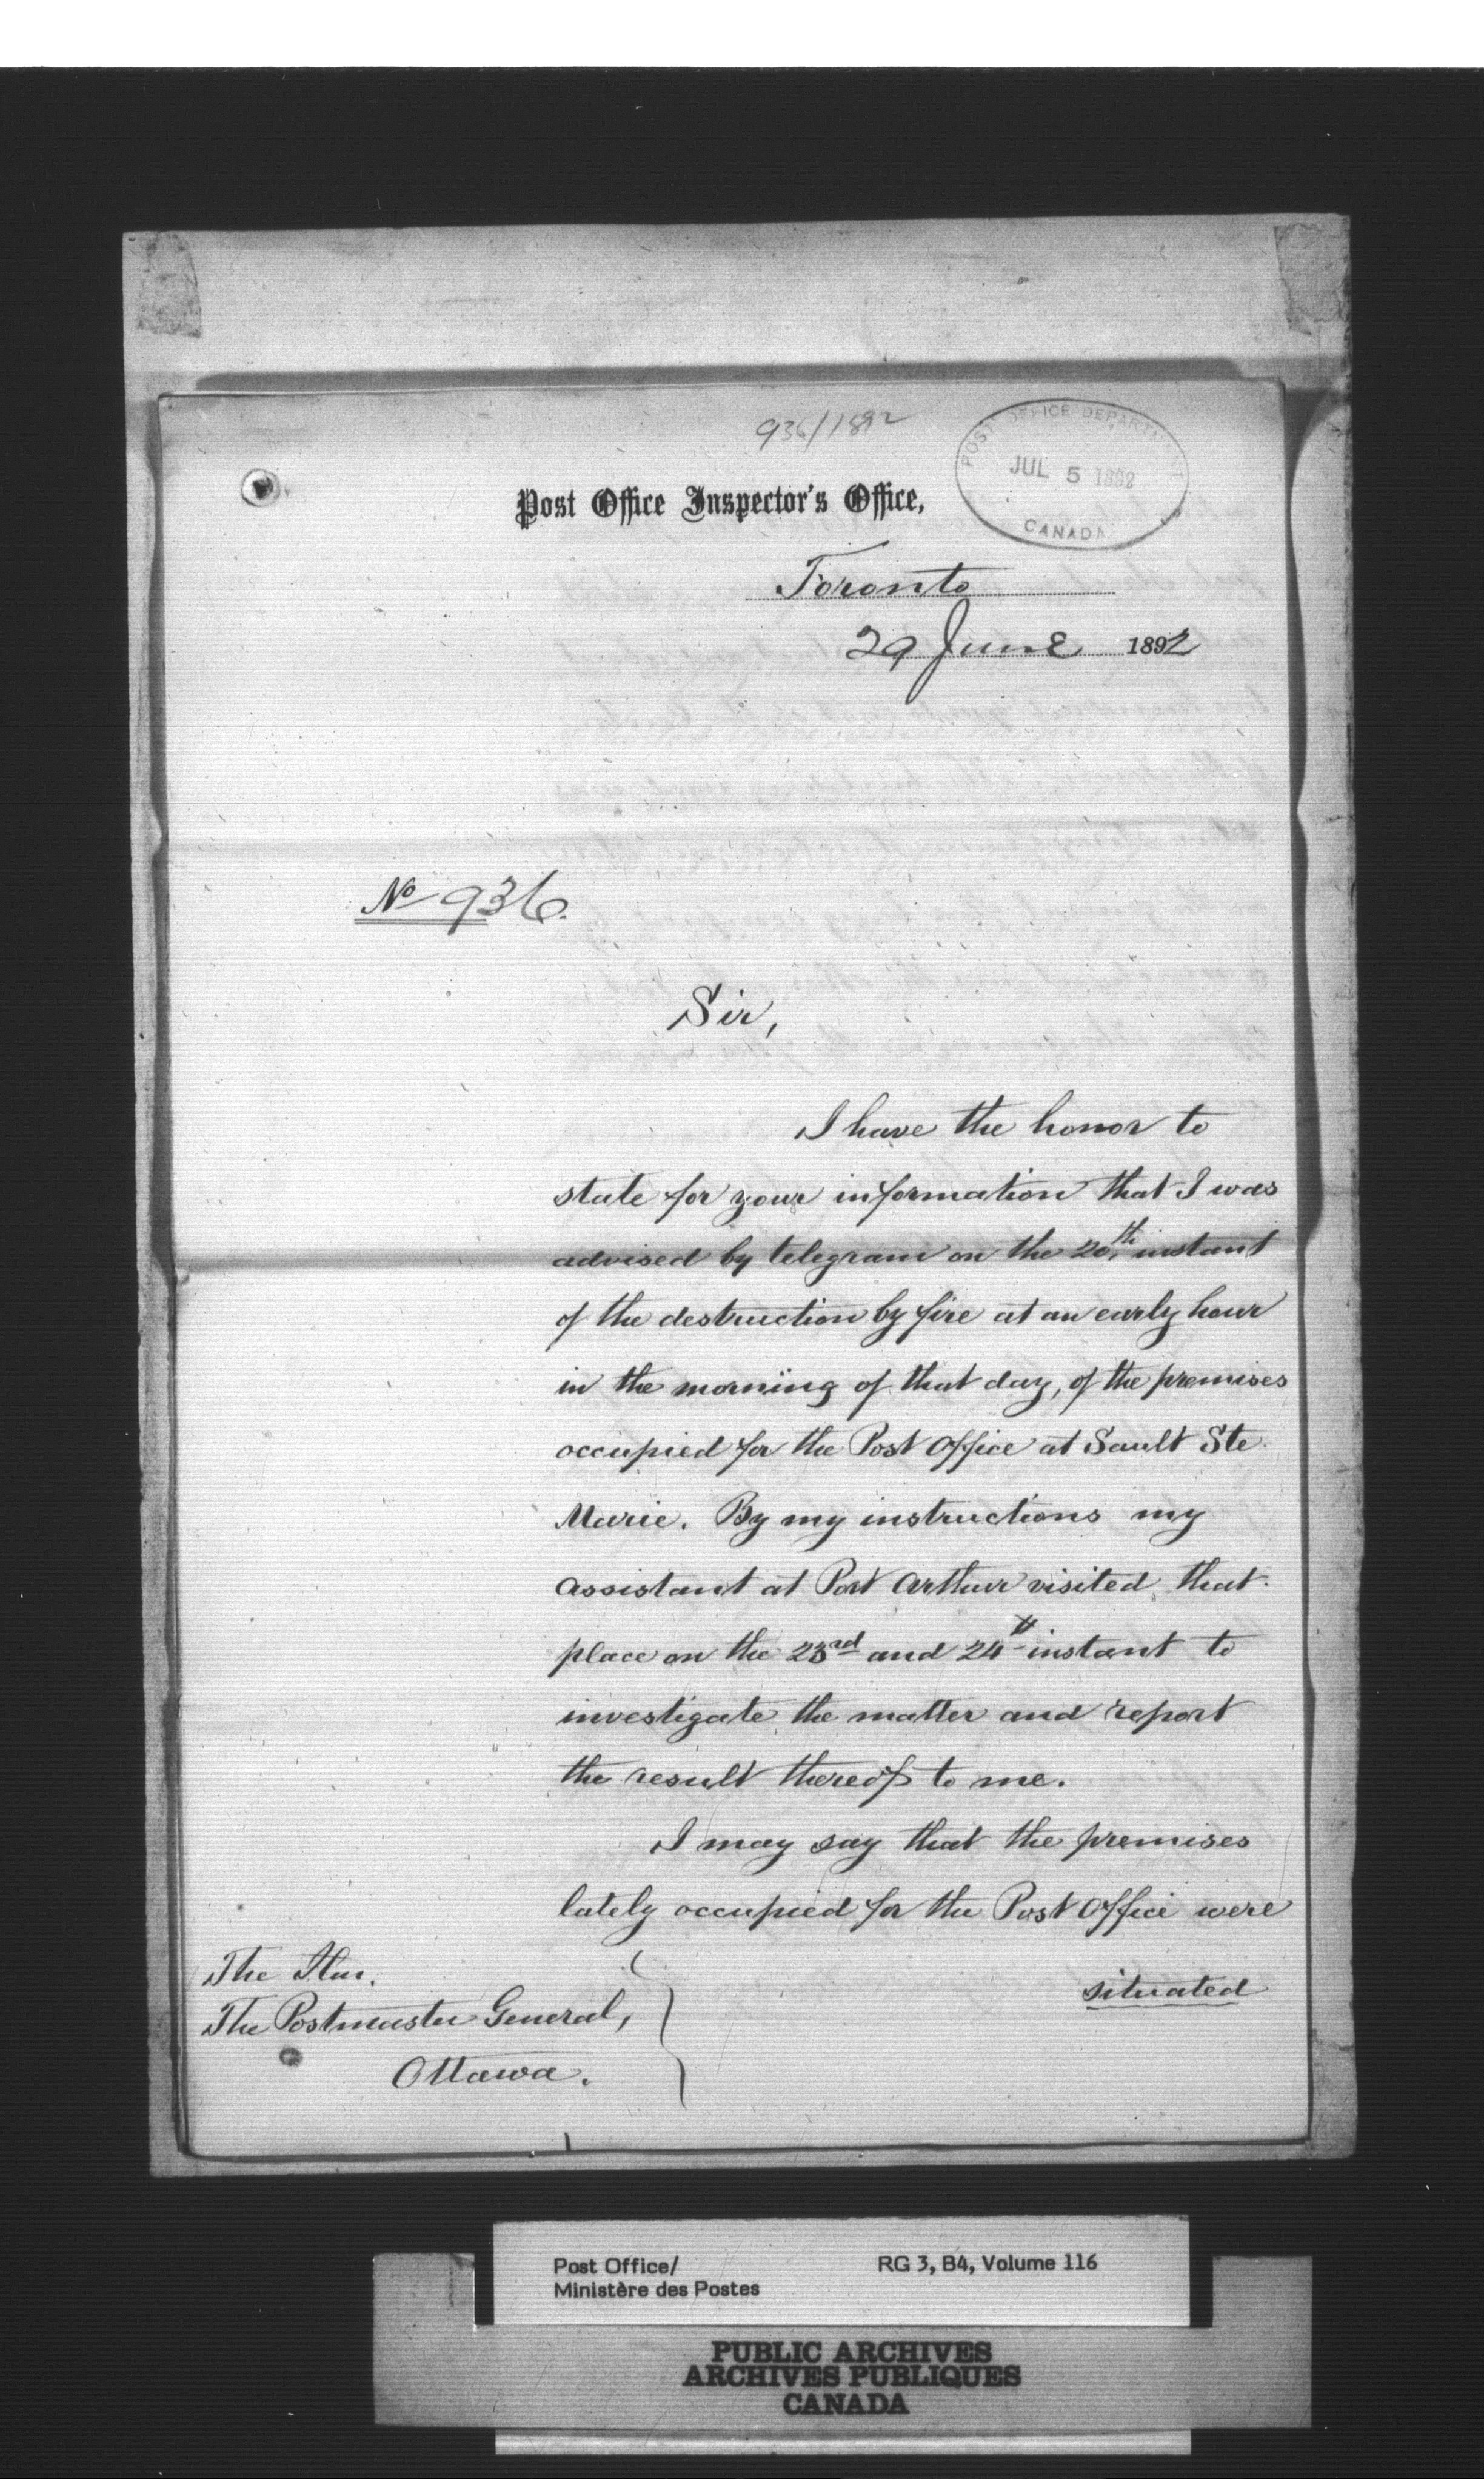 936/1892
POST OFFICE DEPARTMENT
JUL 5 1892
CANADA
Post Office Inspector's Office,
Toronto
29 June 1892
No 936.
Sir,
I have the honor to
state for your information that I was
advised by telegram on the 20th instant
of the destruction by fire at an early hour
in the morning of that day, of the premises
occupied for the Post Office at Sault Ste.
Marie. By my instructions my
assistant at Port Arthur visited that
place on the 23rd and 24th instant to
investigate the matter and report
the result thereof to me.
I may say that the premises
lately occupied for the Post Office were
situated
The Hon.
The Postmaster General,
Ottawa.
Post Office/
Ministère des Postes
RG 3, B4, Volume 116
PUBLIC ARCHIVES
ARCHIVES PUBLIQUES
CANADA